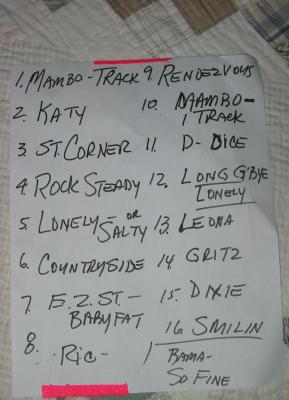 1. MAMBO-TRACK
2. KATY
3. ST. CORNER
4. ROCK STEADY
5. LONELY- OR SALTY
6. COUNTRYSIDE
7. E.Z. ST. -
BABY FAT
8. RIC-
9. RENDEZVOUS
10. MAMBO-
1 TRACK
11. D-DICE
12. LONG G'BYE
LONELY
13. LEONA
14. GRITZ
15. DIXIE
16 SMILIN
BAMA-
SO FINE